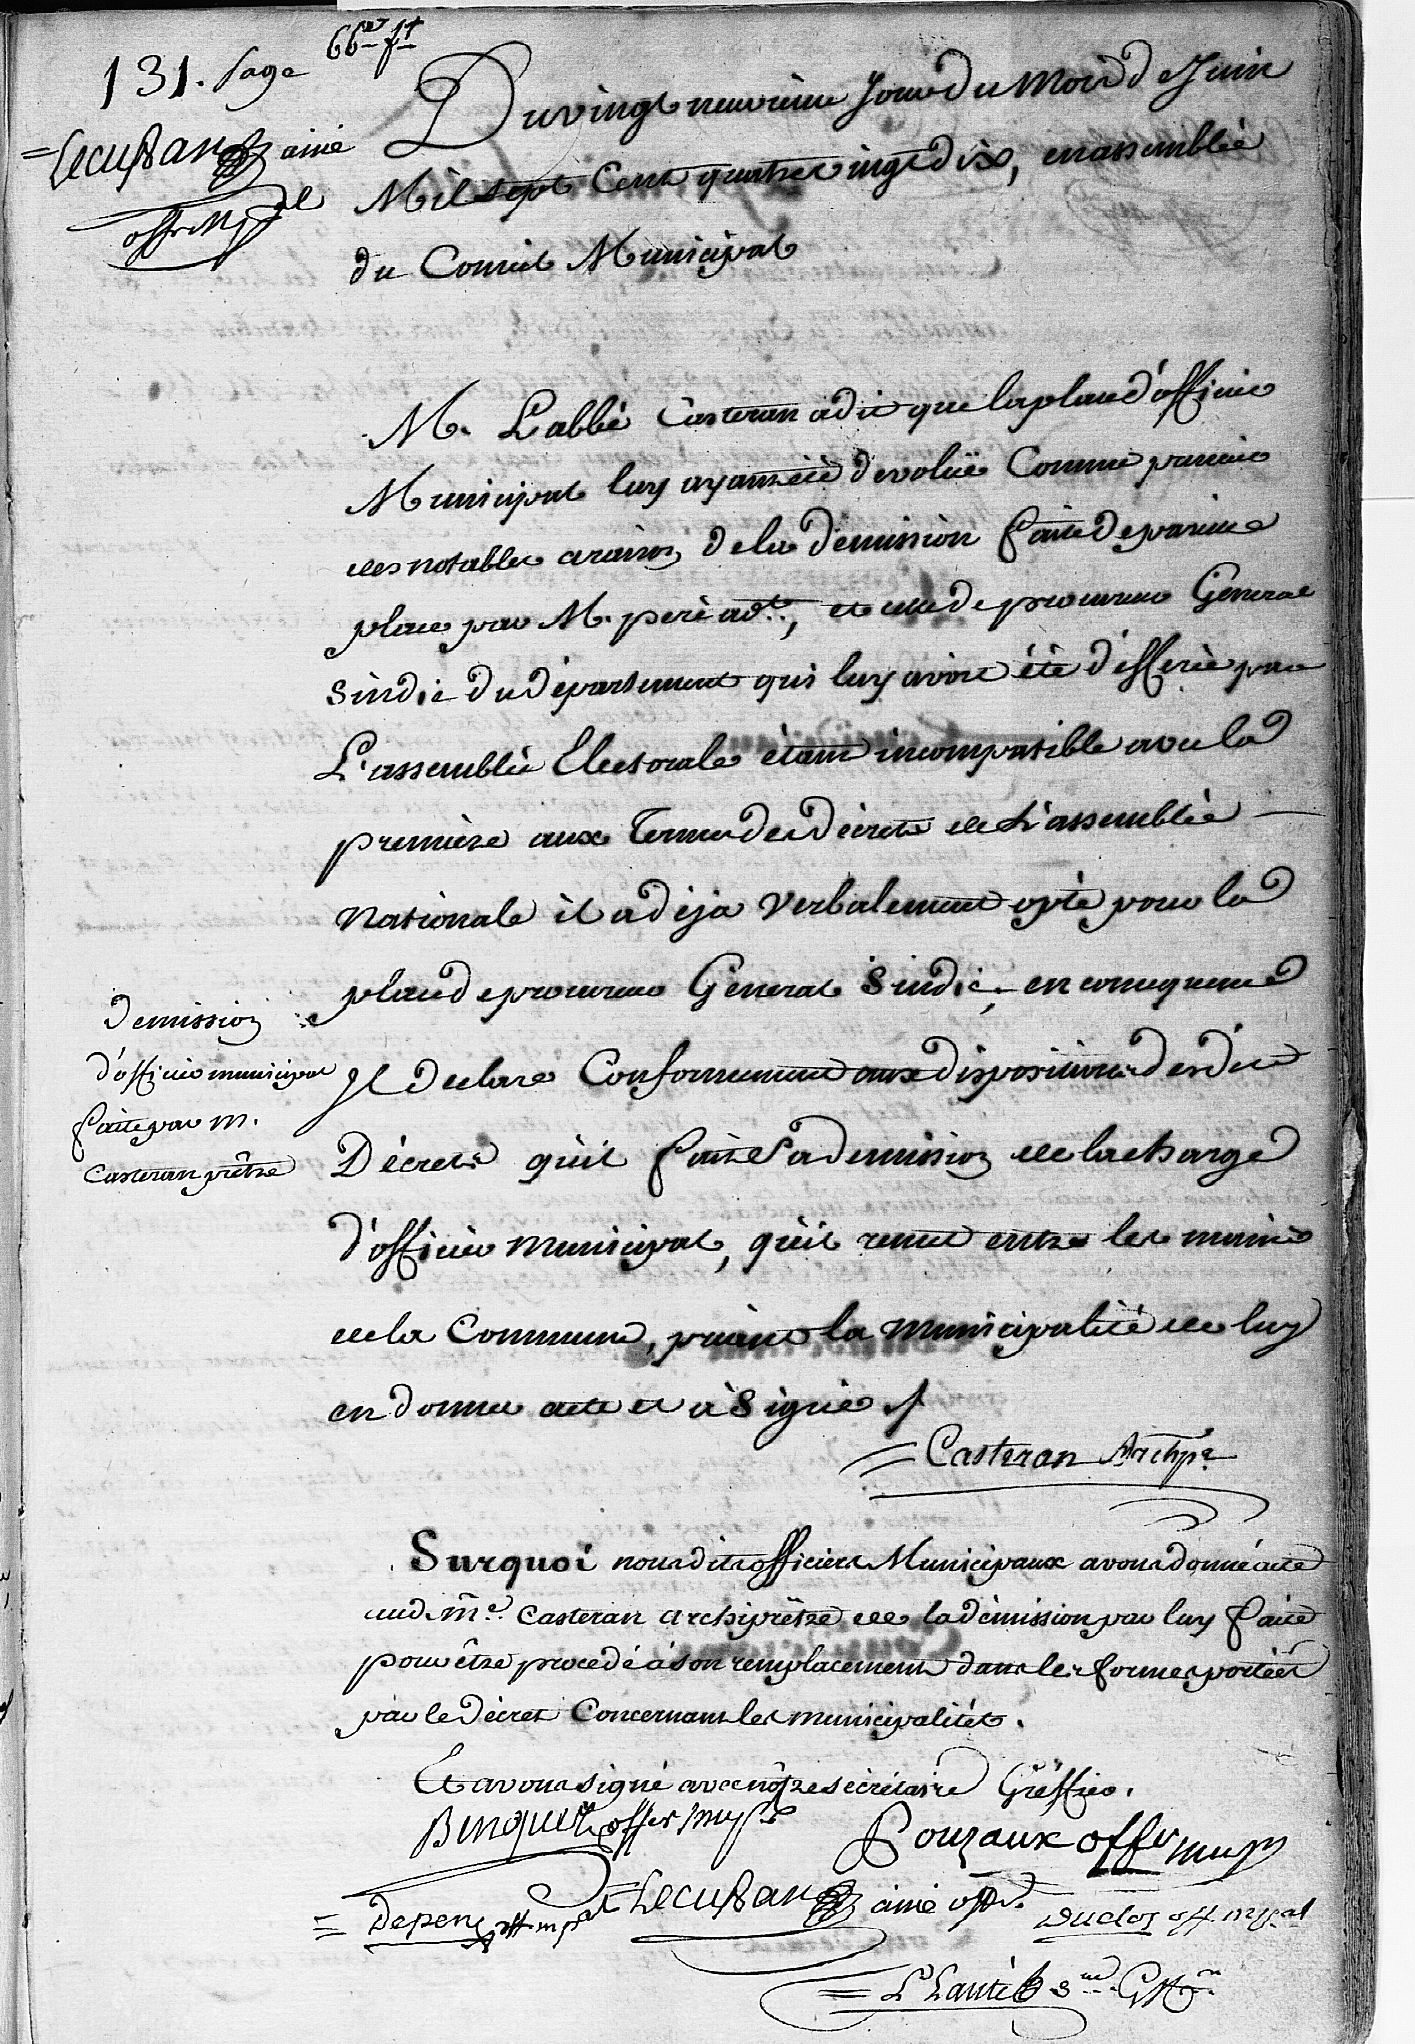 131. page 66me ft
Lecussan ainé
offr Mpal
Du vingt neuvieme Jour du Mois de Juin
Mil sept Cent quatre vingt dix, en assemblée
du Conseil Municipal
M. L'abbé Casteran a dit que la place d'officier
Municipal luy ayant été devoluë Comme premier
des notables a raison de la démission faite de pareille
place par M. peré adt., et celle de procureur General
sindic du département qui luy avoit été défferée par
L'assemblée Electorale étant incompatible avec la
première aux Termes des décrets de L'assemblée
Nationale il a déja verbalement opté pour la
place de procureur Géneral Sindic, en consequence
Il declare Conformement aux dispositions desdits
Décrets qu'il fait Sa demission de la charge
d'officier municipal, qu'il remet entre les mains
de la Commune, priant la municipalité de luy
en donner acte et a Signé
Demission
d'officier municipal
faite par m.
Casteran prêtre
Casteran Archpe
Surquoi nousdits officiers Municipaux avons donné acte
aud. me. Casteran archiprêtre de la démission par luy faite
pour être procedé à son remplacement dans les formes portées
par le décret Concernant les municipalités.
Et avons signé avec nôtre sécrétaire Gréffier.
Pouzaux offr mup
Lecussan ainé off.
Depen off mpal
Duclos off mpal